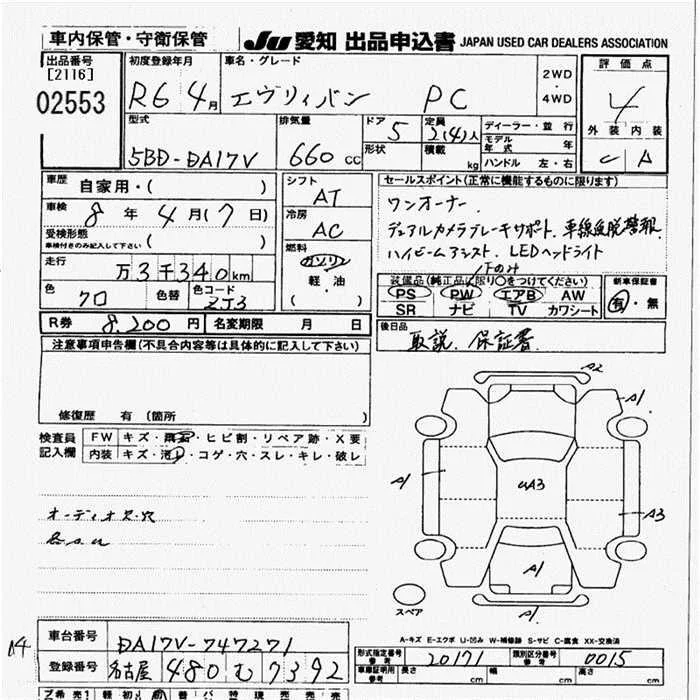 車内保管・守衛保管
JU 愛知 出品申込書 JAPAN USED CAR DEALERS ASSOCIATION
出品番号
[2116]
02553
初度登録年月
R6 4月
車名・グレード
エヴリィバン PC
2WD
・
4WD
評価点
4
外装 内装
C A
型式
5BD-DA17V
排気量
660 cc
ドア
5
形状
定員
2(4)人
積載
kg
ディーラー・並行
モデル年式 年
ハンドル 左・右
車歴
自家用・( )
車検
8年 4月(7日)
受検形態
車検付きのみ記入して下さい ( )
走行
万3千340km
色
クロ
色替
色コード
ZJ3
シフト
AT
冷房
AC
燃料
ガソリン
軽油
( )
セールスポイント(正常に機能するものに限ります)
ワンオーナー
デュアルカメラブレーキサポート. 車線逸脱警報
ハイビームアシスト. LEDヘッドライト
Fのみ
装備品(純正品に限り○をつけてください)
PS PW エアB AW
SR ナビ TV カワシート
新車保証書
有・無
R券 8,200円
名変期限 月 日
後日品
取説. 保証書
注意事項申告欄(不具合内容等は具体的に記入して下さい)
修復歴 有 (箇所 )
検査員
記入欄
FW キズ・飛石・ヒビ割・リペア跡・X要
内装 キズ・汚れ・コゲ・穴・スレ・キレ・破レ
オーディオ欠・穴
A2
A1
A1
UA3
A3
A1
A1
スペア
A-キズ E-エクボ U-凹み W-補修跡 S-サビ C-腐食 XX-交換済
車台番号 DA17V-747271
登録番号 名古屋 480 む 7392
形式指定番号
参考
20171
類別区分番号
参考
0015
車庫証明用
参考
長さ cm 幅 cm 高さ cm